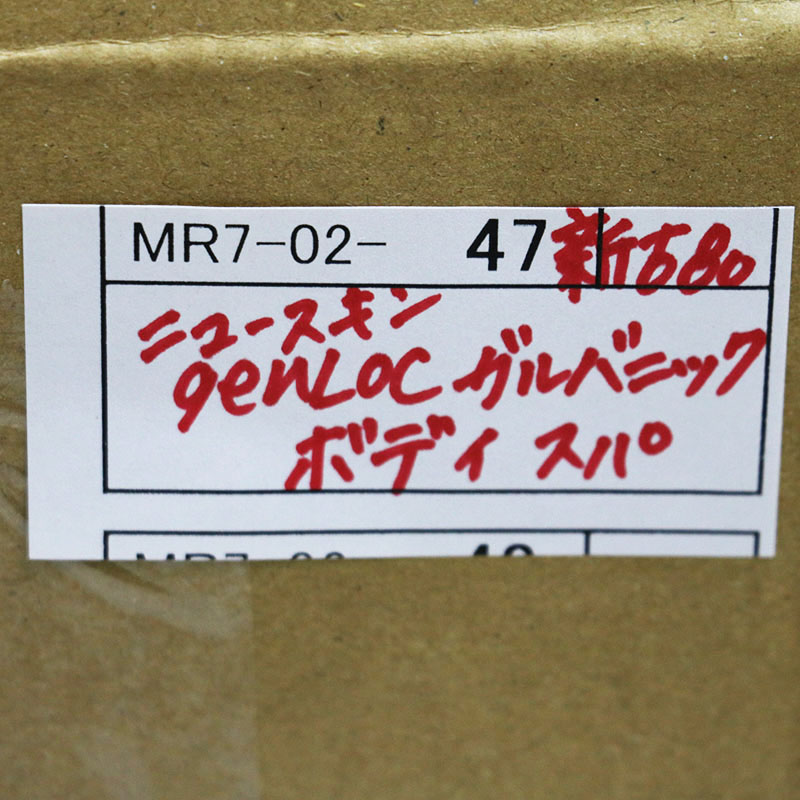 MR7-02- 47 新古80
ニュースキン
genLOC ガルバニック
ボディ スパ